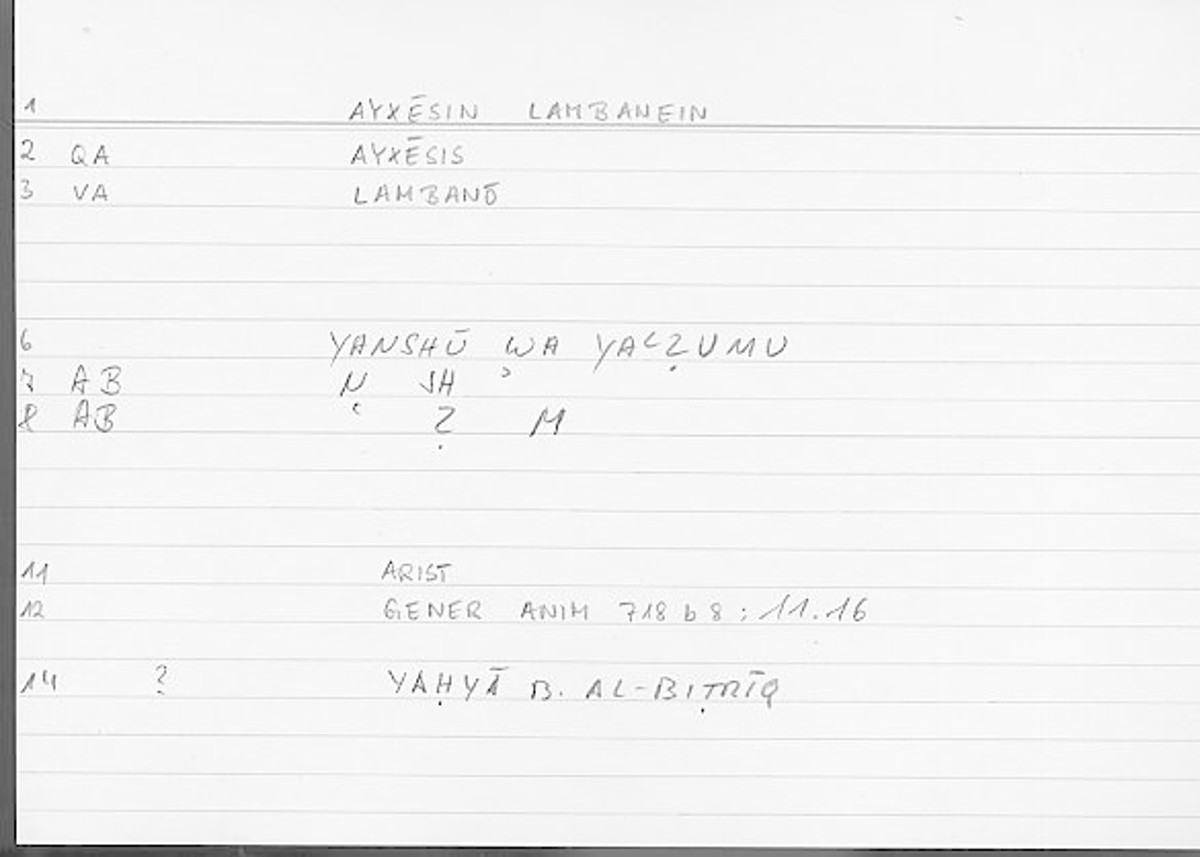 1 AYXĒSIN LAMBANEIN
2 QA AYXĒSIS
3 VA LAMBANŌ
6 YANSHŪ WA YAꜤẒUMU
7 AB N SH
8 AB Ẓ M
11 ARIST
12 GENER ANIM 718 b 8 ; 11.16
14 ? YAḤYĀ B. AL-BIṬRĪQ